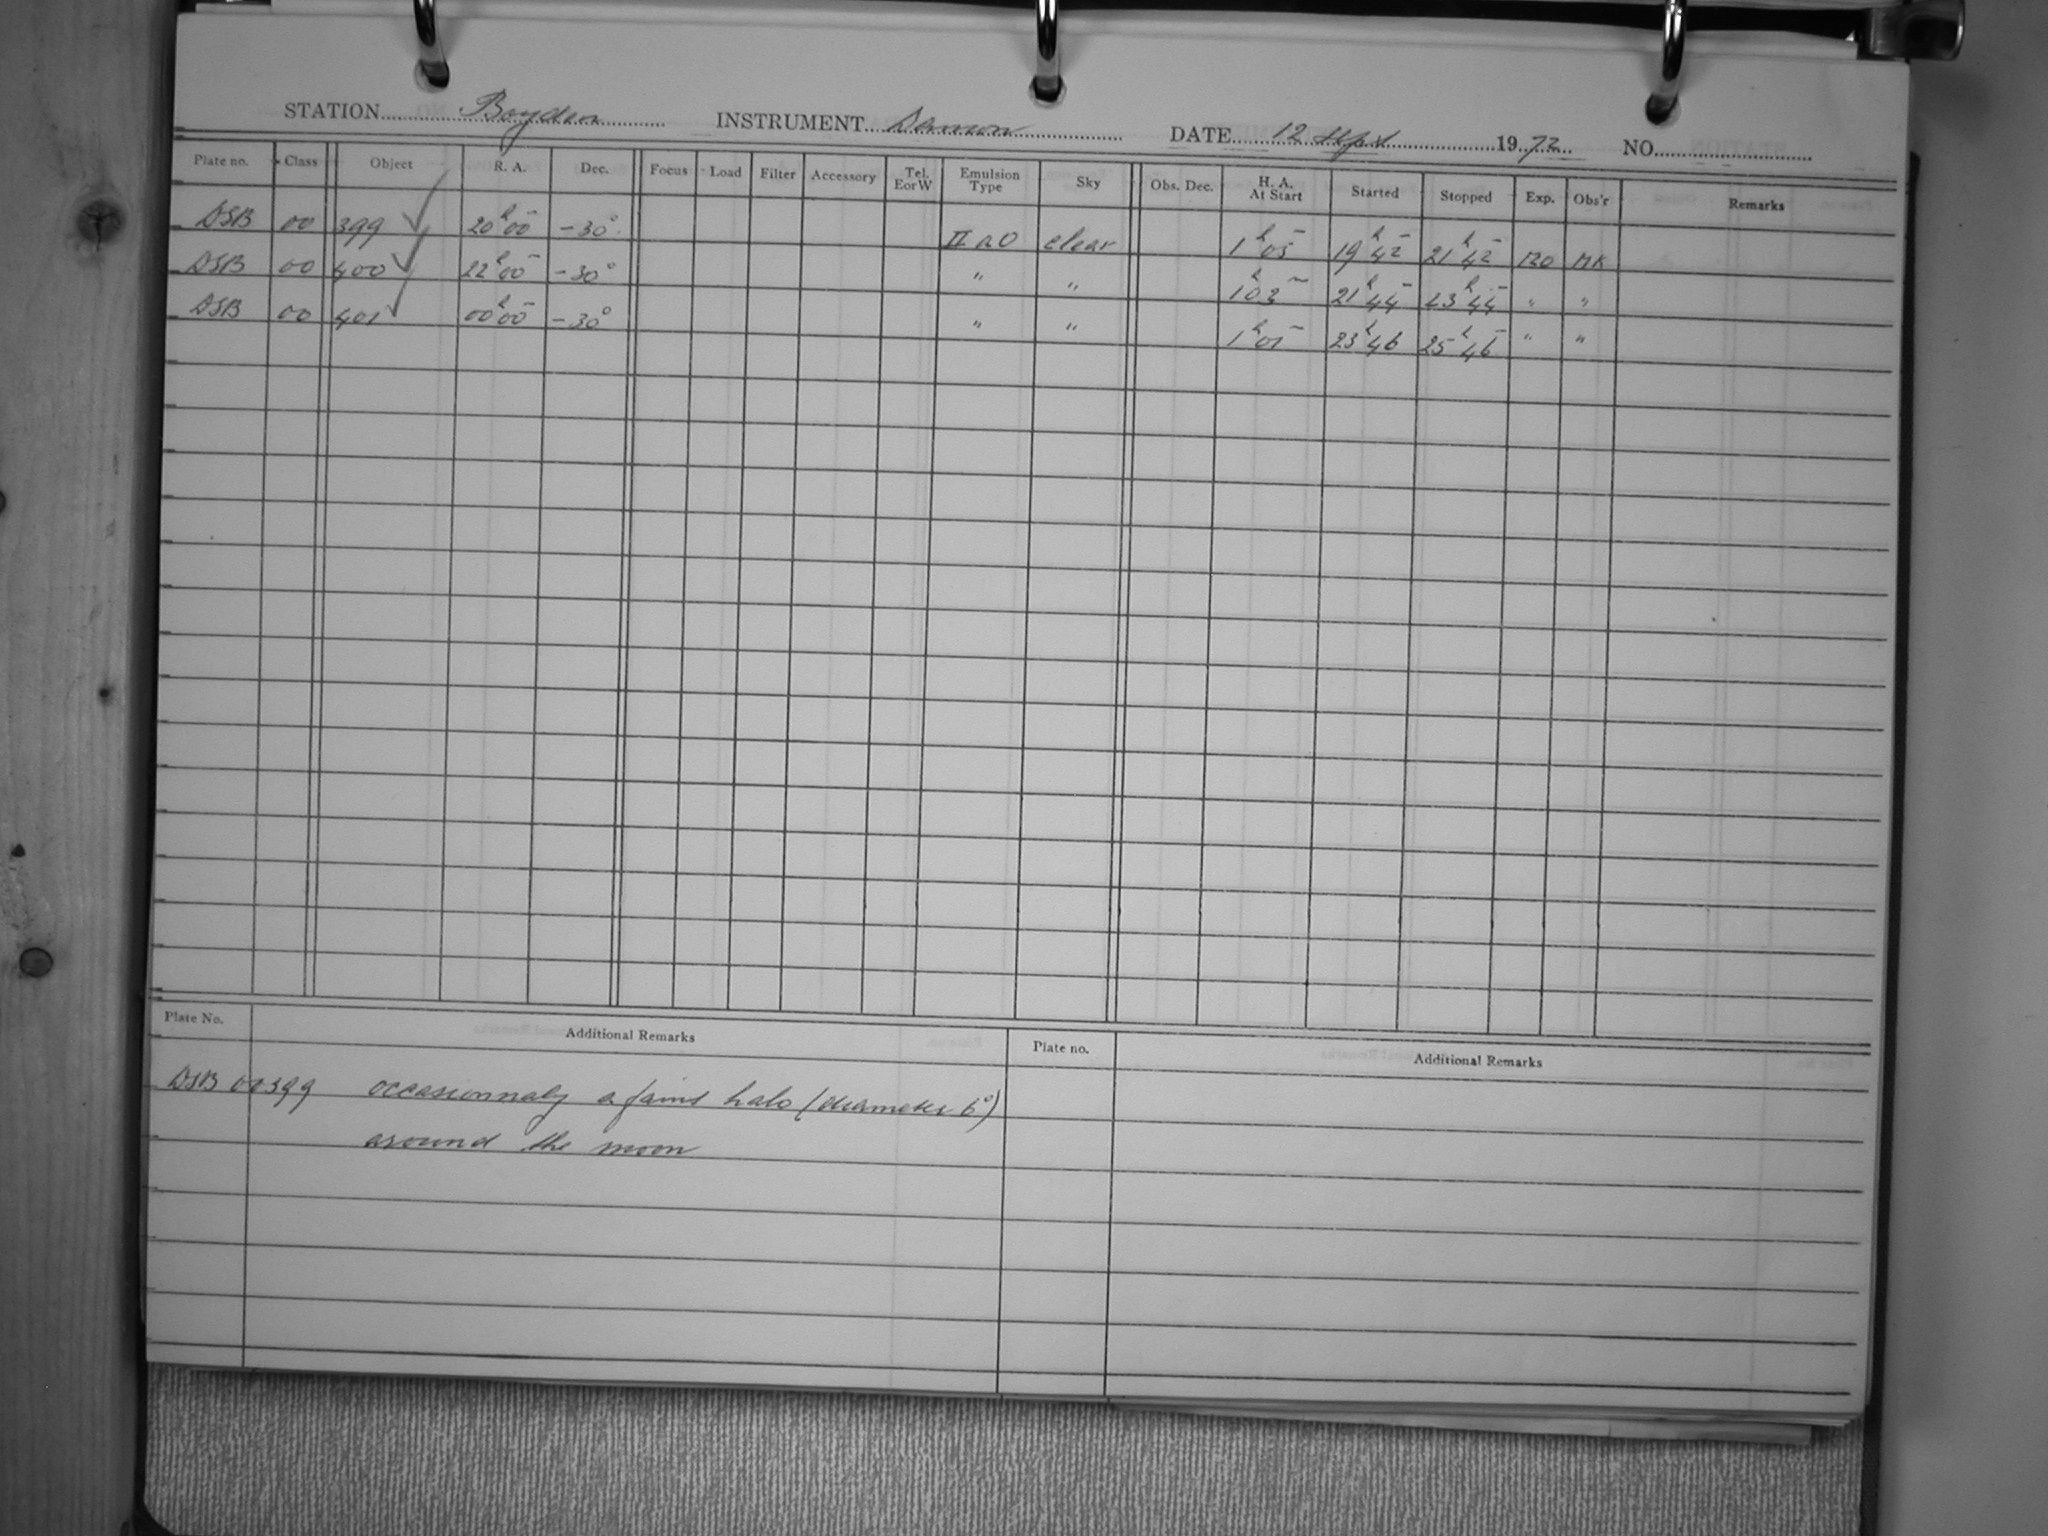 STATION Boyden INSTRUMENT Damon DATE 12 Sept 1972 NO
Plate no. Class Object R. A. Dec. Focus Load Filter Accessory Tel. EorW Emulsion Type Sky Obs. Dec. H. A. At Start Started Stopped Exp. Obs'r Remarks
DSB 00 399 ✓ 20h00m -30° II a O clear 1h05m 19h42m 21h42m 120 MK
DSB 00 400 ✓ 22h00m -30° " " 1h03m 21h44m 23h44m " "
DSB 00 401 ✓ 00h00m -30° " " 1h01m 23h46 25h46m " "
Plate No. Additional Remarks Plate no. Additional Remarks
DSB 00399 occasionnaly a faint halo (diameter 6°)
around the moon